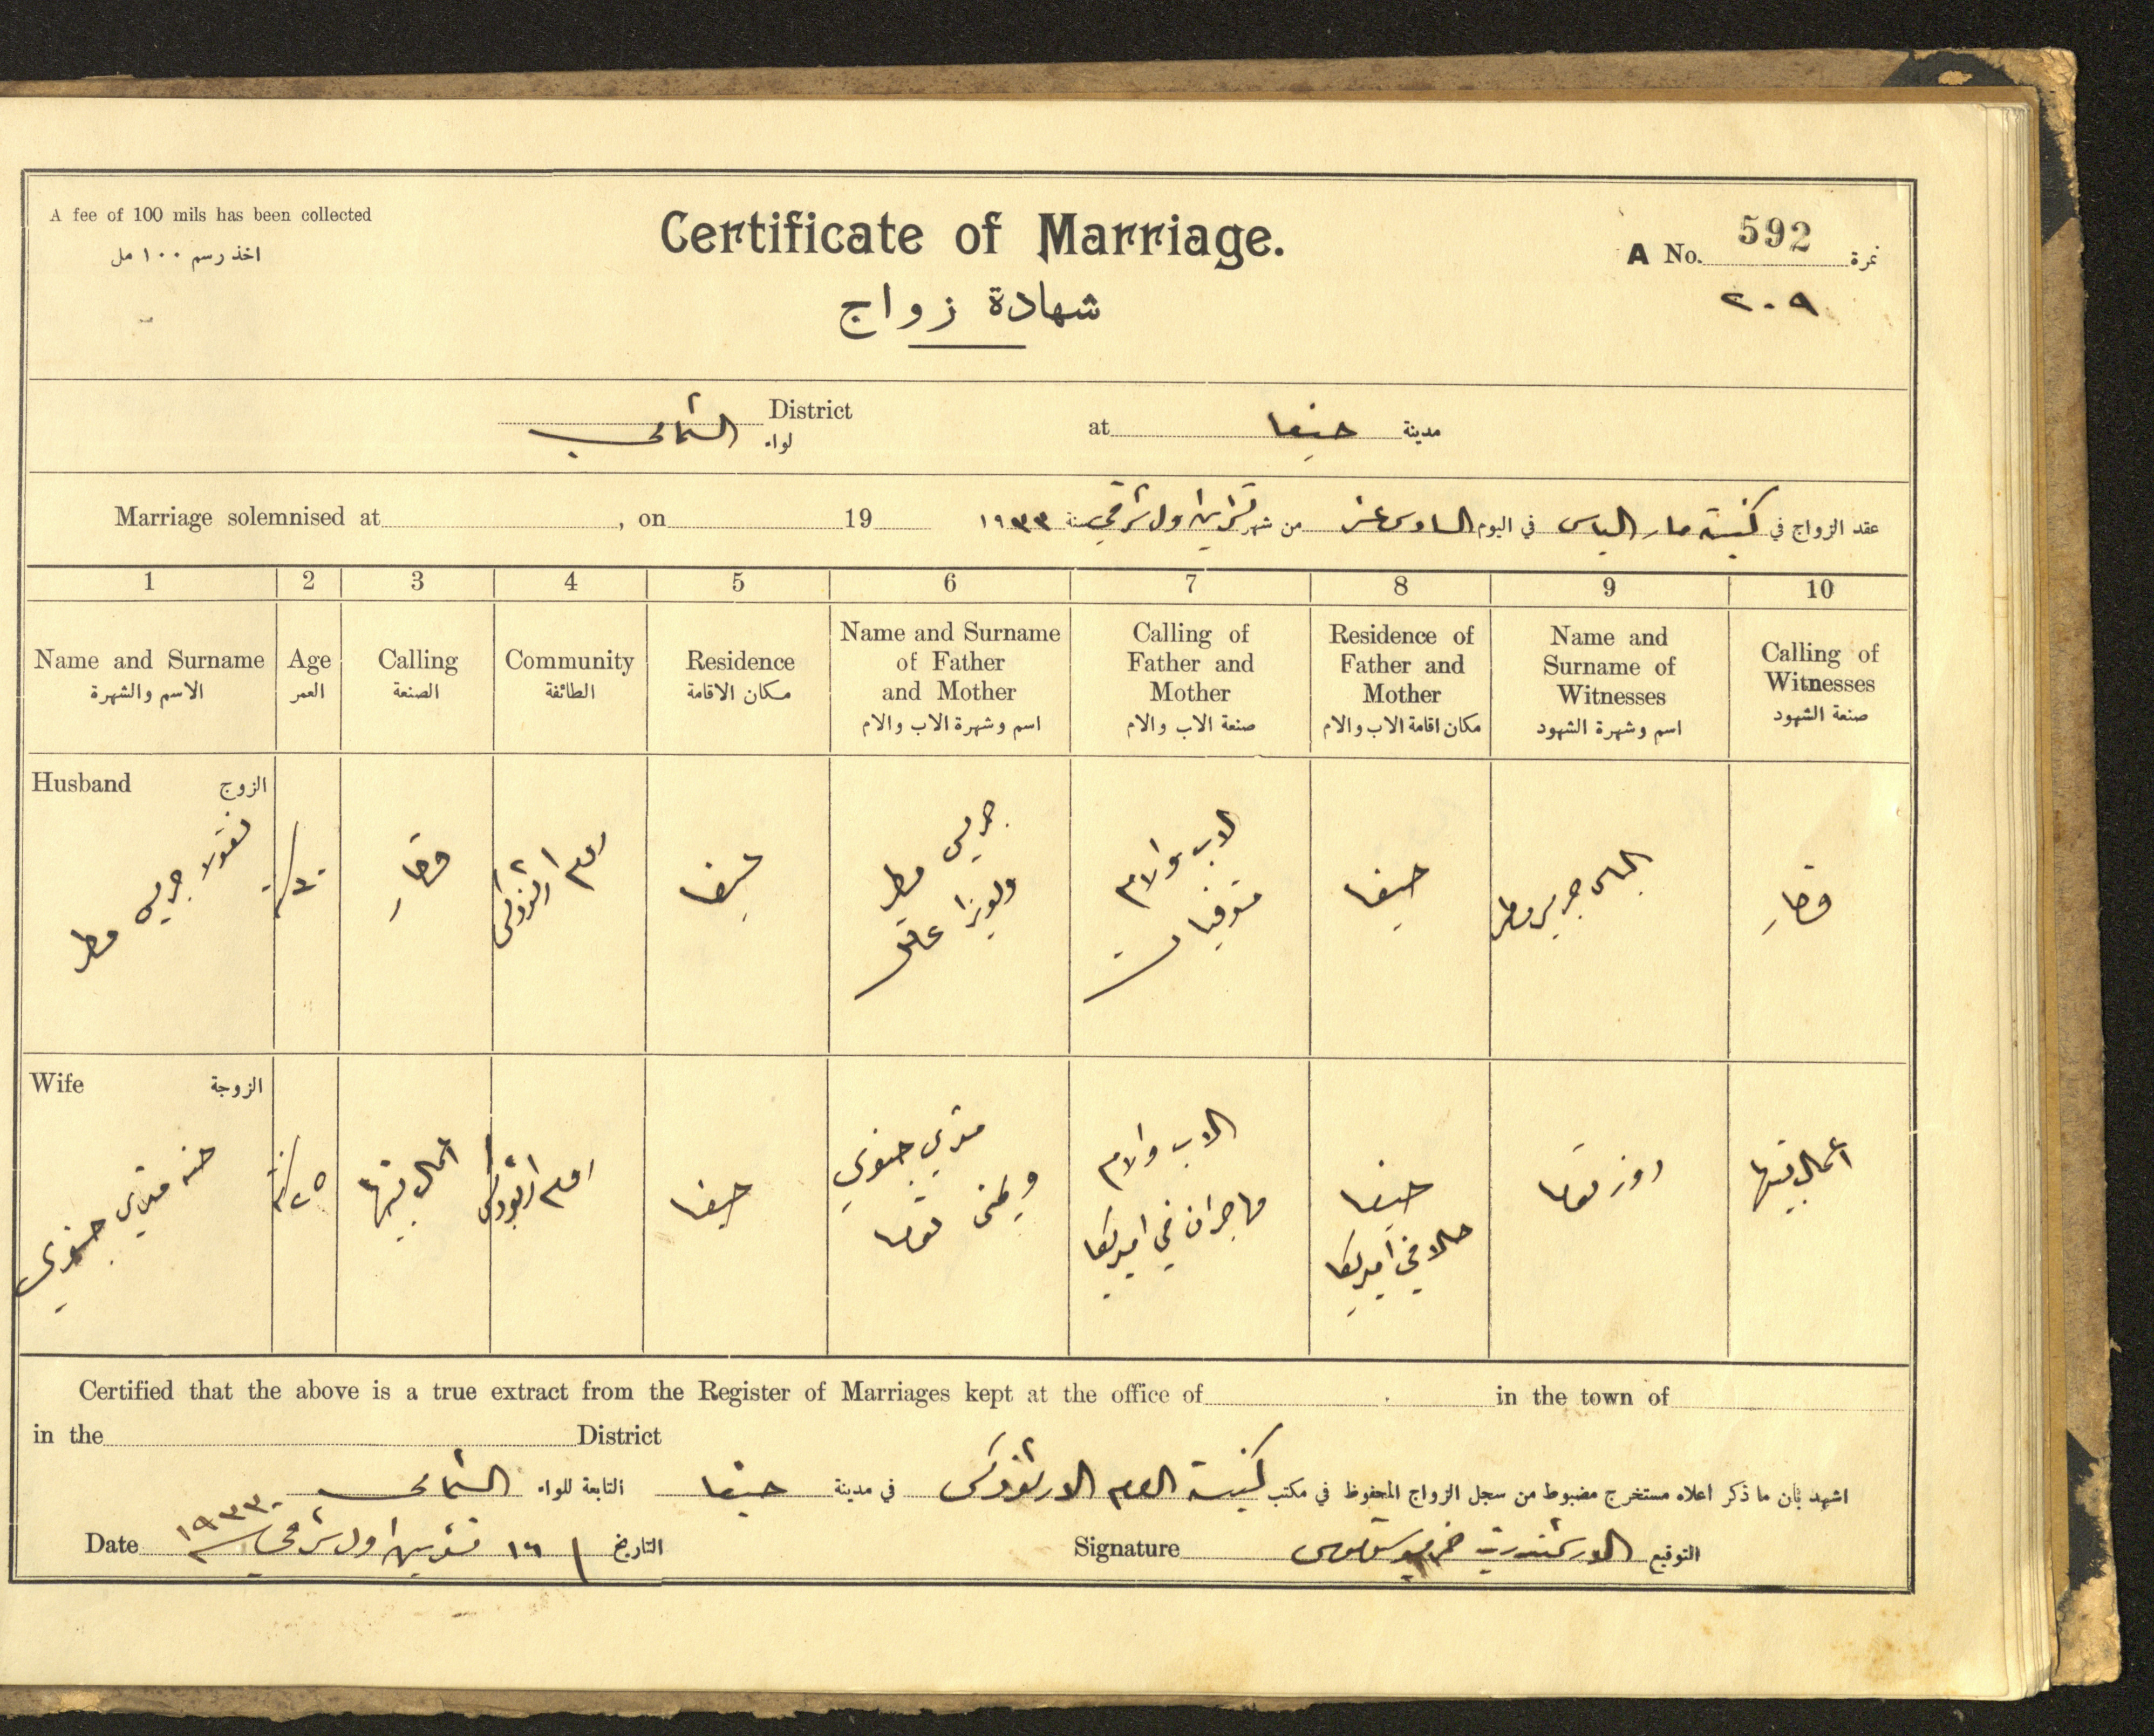 A fee of 100 mils has been collected
اخذ رسم ١٠٠ مل
Certificate of Marriage.
شهادة زواج
A No. 592 نمرة
٢٠٩
District لواء الشمالي
at حيفا مدينة
Marriage solemnised at , on 19
عقد الزواج في كنيسة مار الياس في اليوم السادس عشر من شهر تشرين اول شرقي سنة ١٩٣٣
1 2 3 4 5 6 7 8 9 10
Name and Surname
الاسم والشهرة
Age
العمر
Calling
الصنعة
Community
الطائفة
Residence
مكان الاقامة
Name and Surname
of Father
and Mother
اسم وشهرة الاب والام
Calling of
Father and
Mother
صنعة الاب والام
Residence of
Father and
Mother
مكان اقامة الاب والام
Name and
Surname of
Witnesses
اسم وشهرة الشهود
Calling of
Witnesses
صنعة الشهود
Husband الزوج
نقولا جريس مطر
روم ارثوذكس
حيفا
جريس مطر
ولويزا
الاب والام
متوفيات
حيفا
جريس مطر
Wife الزوجة
حنه متري
٢٥
اعمال بيتها
روم ارثوذكس
حيفا
متري
توما
الاب والام
مهاجران في اميركا
حيفا
حالا في اميركا
روز توما
اعمال بيتها
Certified that the above is a true extract from the Register of Marriages kept at the office of in the town of
in the District
اشهد بأن ما ذكر اعلاه مستخرج مضبوط من سجل الزواج المحفوظ في مكتب كنيسة الروم الارثوذكس في مدينة حيفا التابعة للواء الشمالي
Date ١٦ تشرين اول شرقي سنة ١٩٣٣ التاريخ
Signature الارشمندريت التوقيع